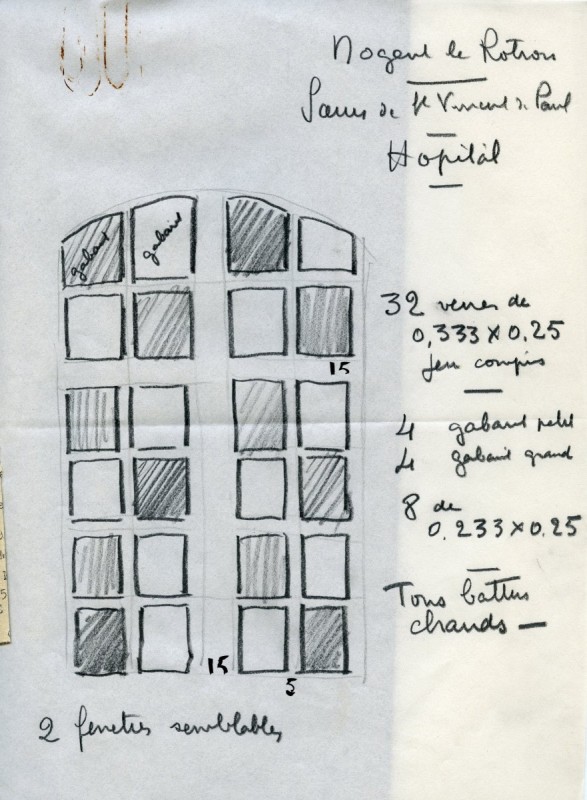 Nogent le Rotrou
Sœurs de St Vincent de Paul
Hopital
gabarit
gabarit
32 verres de
0,333 x 0.25
jeu compris
15
4 gabarit petit
4 gabarit grand
8 de
0.233 x 0.25
Tons battus
chauds
15
5
2 fenetres semblables